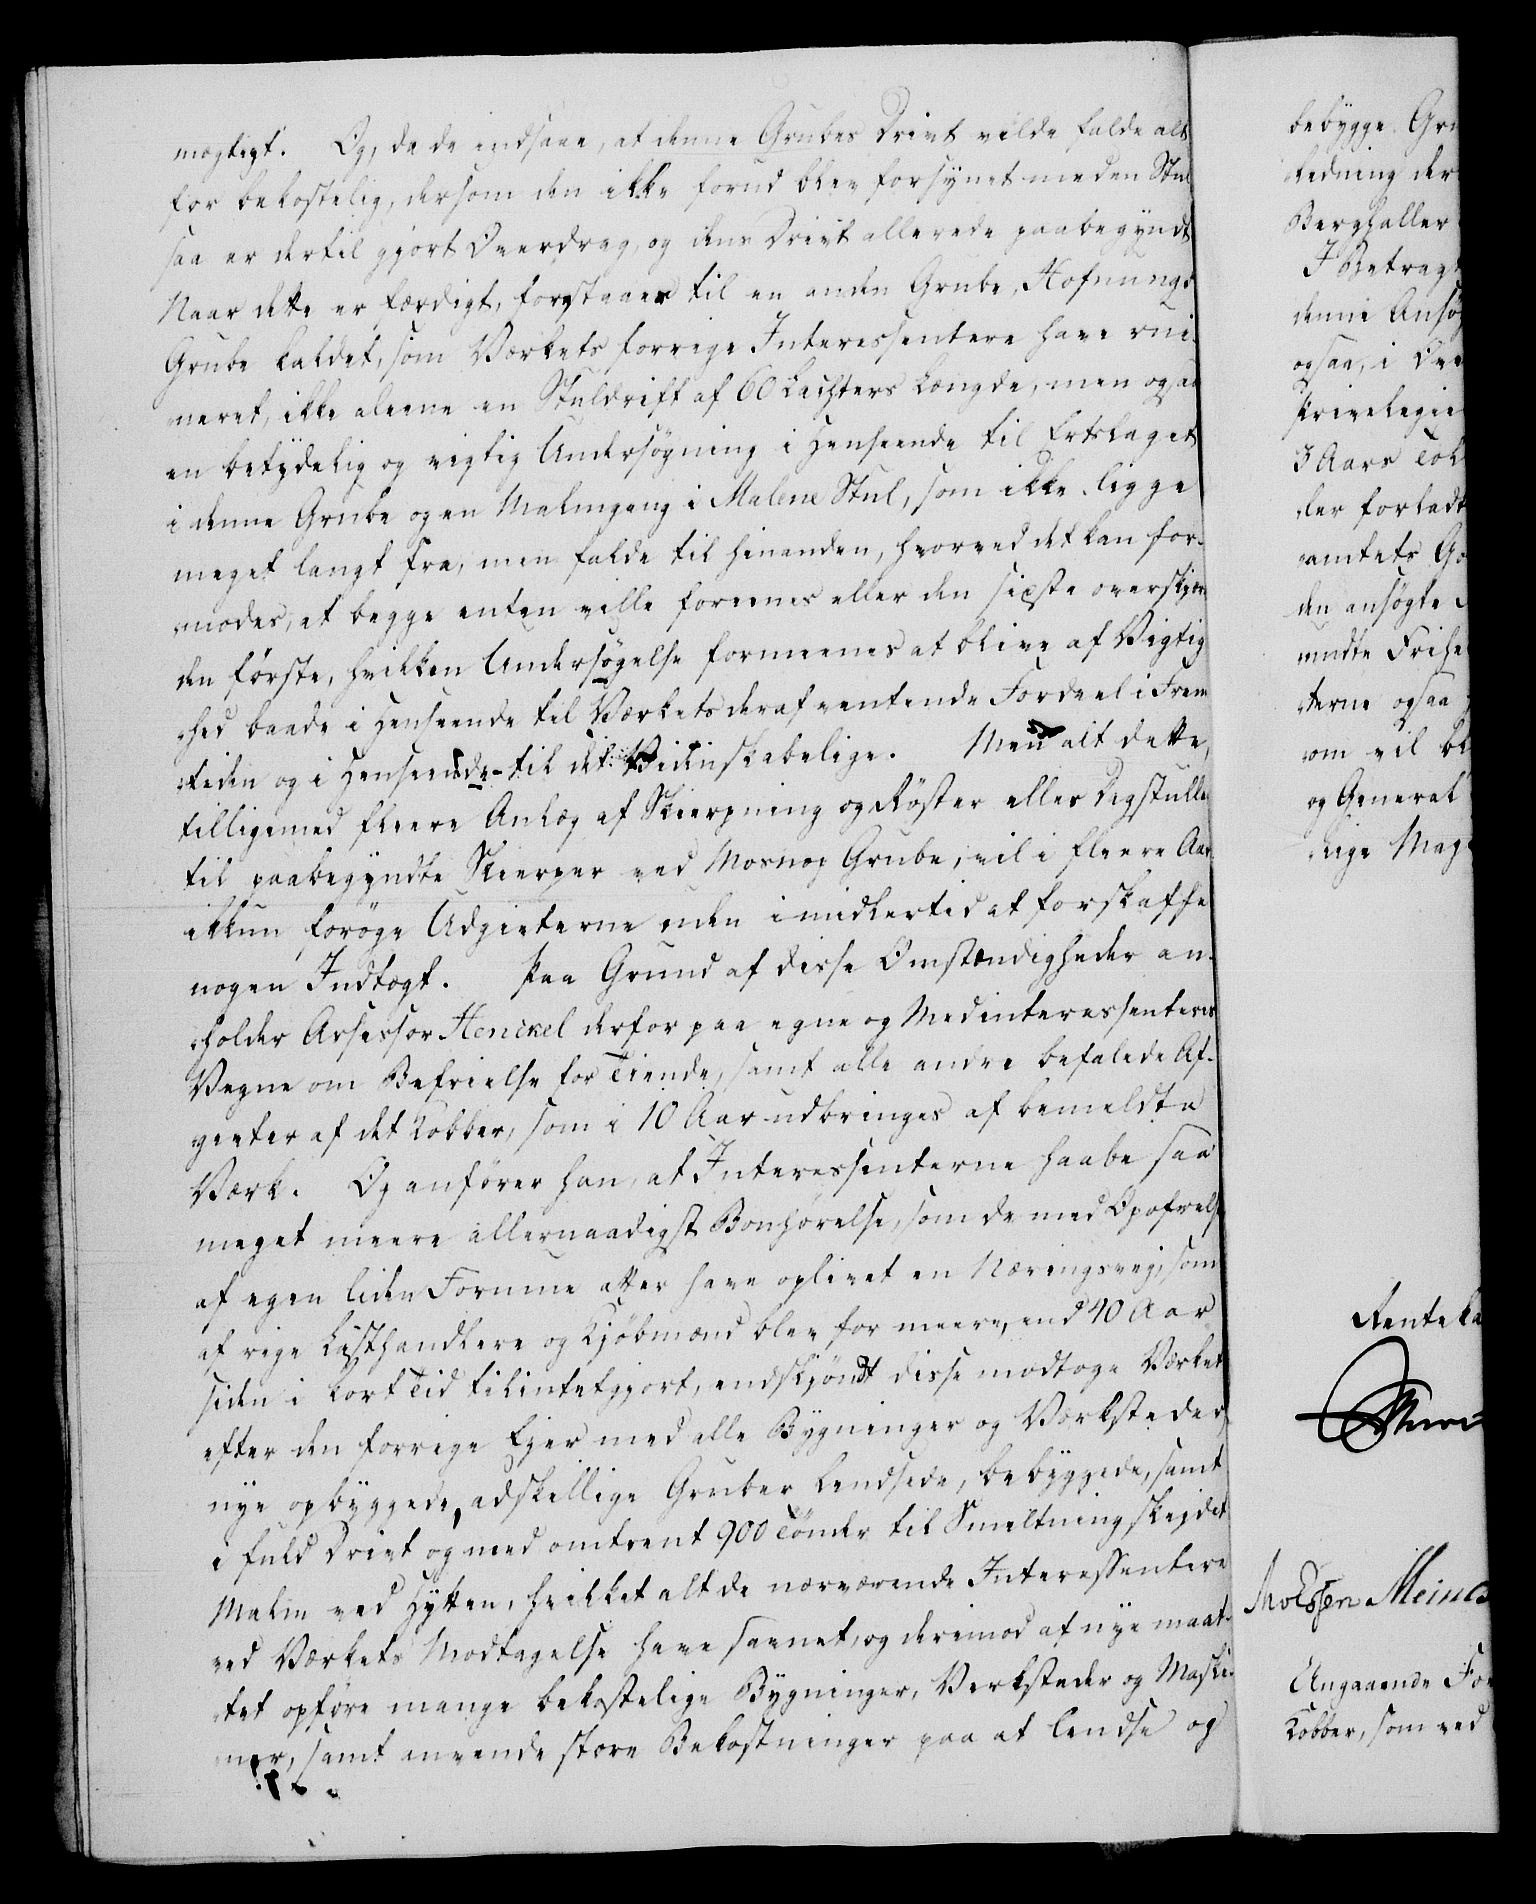 mægtigt. Og, da de indsaae, at denne Grubes Drivt vilde falde alt
for bekostelig, dersom den ikke forud blev forsynet med en Stul
saa er dertil gjort Overdrag, og dens Drivt allerede paabegyndt
Naar dette er færdigt, forestaaer til en anden Grube, Hofnungs
Grube kaldet, som Værkets forrige Interessentere have rui-
neret, ikke aleene en Stuldrift af 60 Lachters Længde, men ogsaa
en betydelig og vigtig Undersøgning i Henseende til Ertslaget
i denne Grube og en Malmgang i Malene Stul, som ikke ligge
meget langt fra, men falde til hinanden, hvorved det kan for-
modes, at begge enten ville foreenes eller den sidste overskjære
den første, hvilken Undersøgelse formeenes at blive af Vigtig
hed baade i Henseende til Værkets deraf ventende Fordeel i Frem
tiden og i Henseende til det Videnskabelige. Men alt dette,
tilligemed fleere Anlæg af Skierpning og Røster eller Dagstulle
til paabegyndte Skierper ved Mosnap Grube, vil i fleere Aar
ikkun forøge Udgivterne uden imidlertid at forskaffe
nogen Indtægt. Paa Grund af disse Omstændigheder an-
holder Assessor Henckel derfor paa egne og Medinteressenteres
Vegne om Befrielse for Tiende, samt alle andre befalede Af-
givter af det Kobber, som i 10 Aar udbringes af bemeldte
Værk. Og anfører han, at Interessenterne haabe saa
meget meere allernaadigst Bønhørelse, som de med Opofrelse
af egen liden Formue atter have oplivet en Næringsvej, som
af rige Lasthandlere og Kjøbmænd blev for meere, end 40 Aar
siden i kort Tid tilintetgjort, endskjøndt disse modtoge Værket
efter den forrige Ejer med alle Bygninger og Værksteder
nye opbyggede, adskillige Gruber lendsede, bebyggede, samt
i fuld Drivt og med omtrent 900 Tønder til Smeltning skejdet
Malm ved Hytten, hvilket alt de nærværende Interessentere
ved Værkets Modtagelse have savnet, og derimod af nye maat-
tet opføre mange bekostelige Bygninger, Verksteder og Maski-
ner, samt anvende store Bekostninger paa at lendse og
bebygge Gru
ledning der
Berghaller
I Betragt
denne Ansøg
ogsaa, i Ove
Privelegie
3 Aars Told
der forladt
amtets Go
den ansøgte
mdte Frihe
terne ogsaa
om vil bl
og General
lige Maj
Renteka
Meinc
Angaaende For
Kobber, som ved